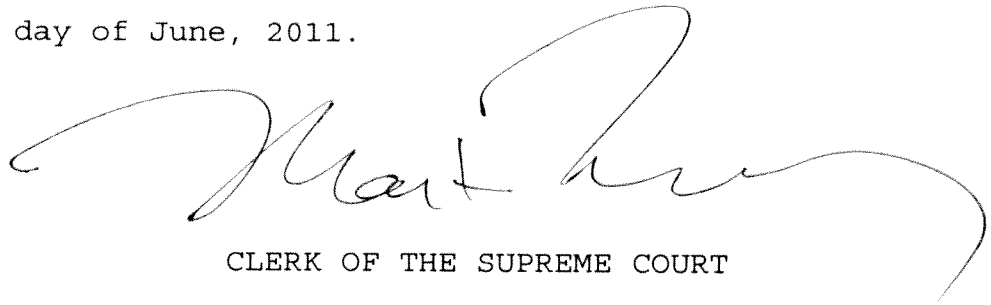 day of June, 2011.
CLERK OF THE SUPREME COURT